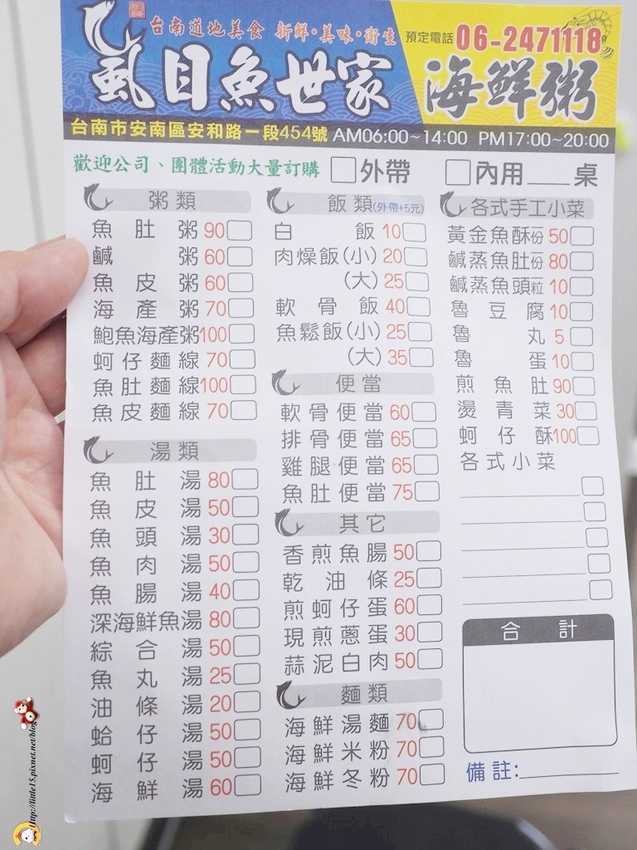 台南道地美食 新鮮·美味·衛生
虱目魚世家
預定電話 06-2471118
海鮮粥
台南市安南區安和路一段454號 AM06:00~14:00 PM17:00~20:00
歡迎公司、團體活動大量訂購 □外帶 □內用___桌
粥類
魚肚粥 90
鹹粥 60
魚皮粥 60
海產粥 70
鮑魚海產粥 100
蚵仔麵線 70
魚肚麵線 100
魚皮麵線 70
湯類
魚肚湯 80
魚皮湯 50
魚頭湯 30
魚肉湯 50
魚腸湯 40
深海鮮魚湯 80
綜合湯 50
魚丸湯 25
油條湯 20
蛤仔湯 50
蚵仔湯 50
海鮮湯 60
飯類(外帶+5元)
白飯 10
肉燥飯(小) 20
(大) 25
軟骨飯 40
魚鬆飯(小) 25
(大) 35
便當
軟骨便當 60
排骨便當 65
雞腿便當 65
魚肚便當 75
其它
香煎魚腸 50
乾油條 25
煎蚵仔蛋 60
現煎蔥蛋 30
蒜泥白肉 50
麵類
海鮮湯麵 70
海鮮米粉 70
海鮮冬粉 70
各式手工小菜
黃金魚酥份 50
鹹蒸魚肚份 80
鹹蒸魚頭粒 10
魯豆腐 10
魯丸 5
魯蛋 10
煎魚肚 90
燙青菜 30
蚵仔酥 100
各式小菜
合計
備註:
http://little15.pixnet.net/blog